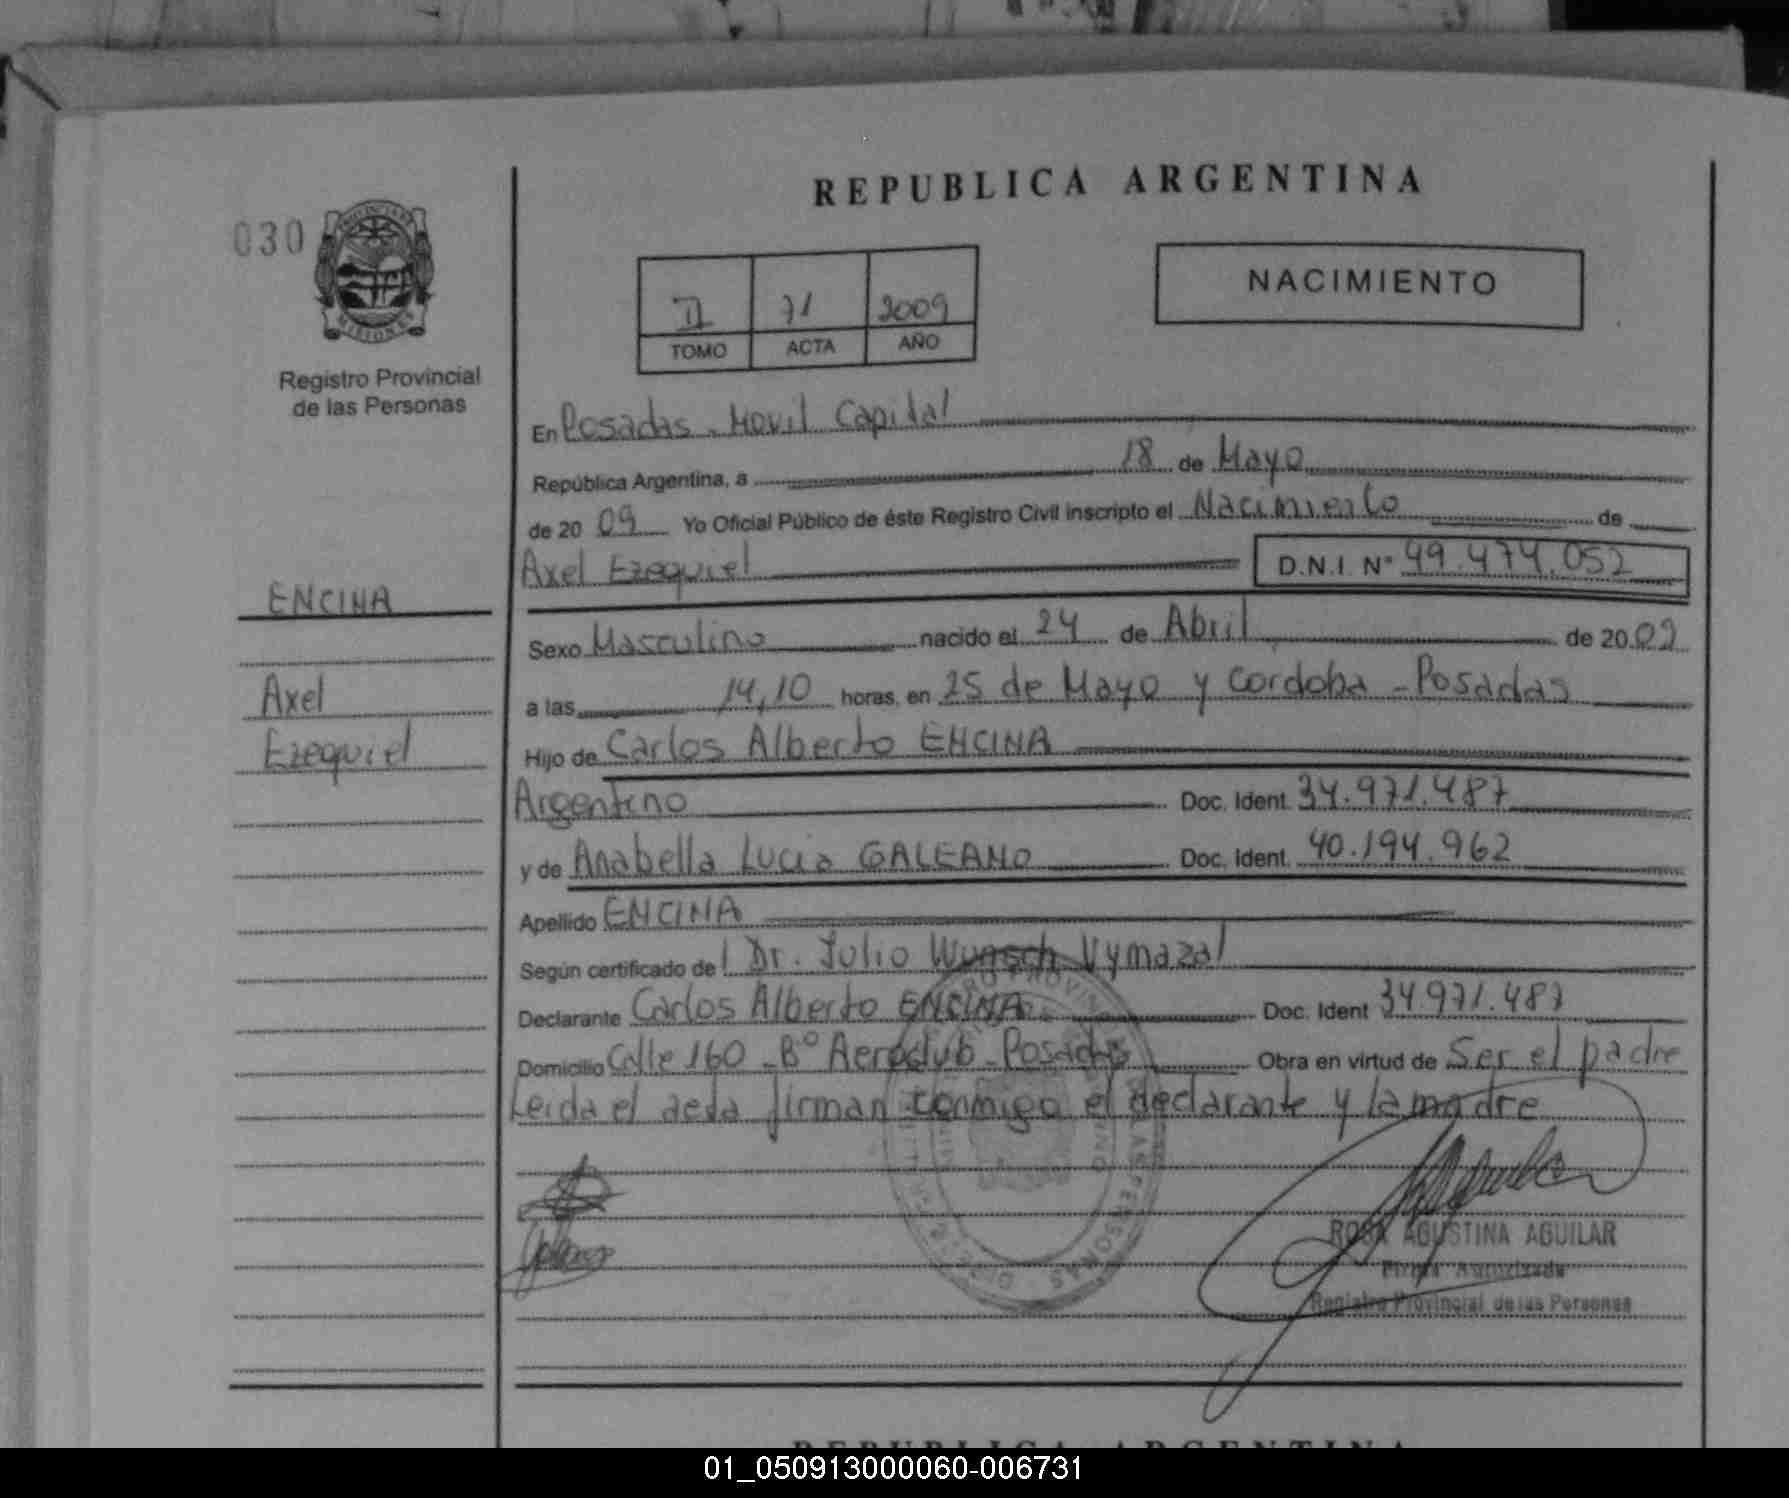 REPUBLICA ARGENTINA
030
PROVINCIA DE
MISIONES
Registro Provincial
de las Personas
II 71 2009
TOMO ACTA AÑO
NACIMIENTO
En Posadas - Movil Capital
República Argentina, a 18 de Mayo
de 20 09 Yo Oficial Público de éste Registro Civil inscripto el Nacimiento de
Axel Ezequiel D.N.I. Nº 49.474.052
ENCINA
Axel
Ezequiel
Sexo Masculino nacido el 24 de Abril de 20 09
a las 14,10 horas, en 25 de Mayo y Cordoba - Posadas
Hijo de Carlos Alberto ENCINA
Argentino Doc. Ident. 34.971.487
y de Anabella Lucia GALEANO Doc. Ident. 40.194.962
Apellido ENCINA
Según certificado del Dr. Julio Wunsch Vymazal
Declarante Carlos Alberto ENCINA Doc. Ident 34971.487
Domicilio Calle 160 - Bº Aeroclub - Posadas Obra en virtud de Ser el padre
Leida el acta firman conmigo el declarante y la madre
ROSA AGUSTINA AGUILAR
Firma Autorizada
Registro Provincial de las Personas
REPUBLICA ARGENTINA
01_050913000060-006731